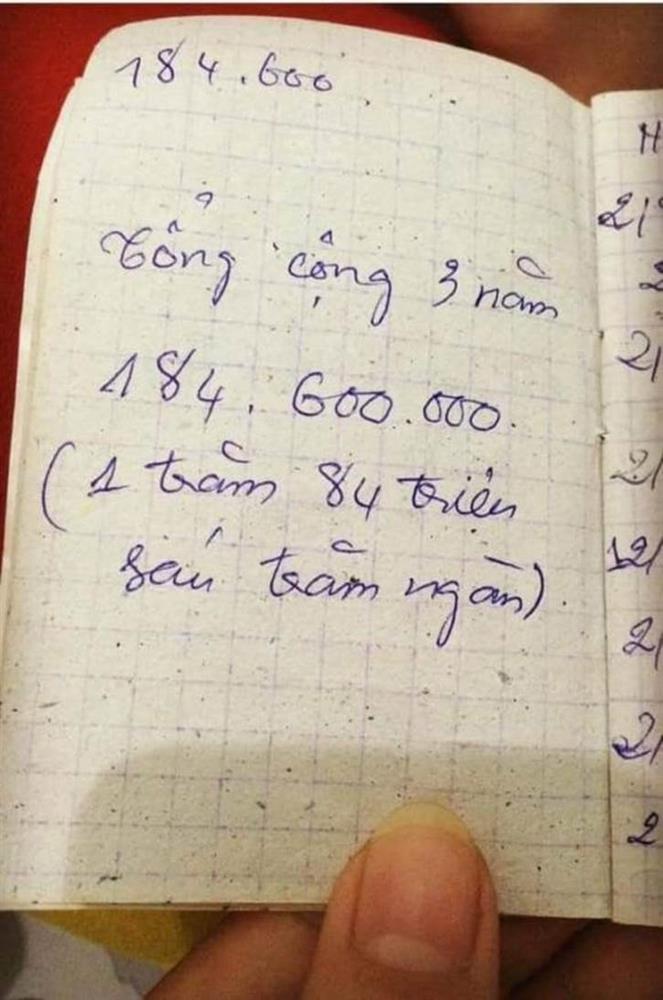 184.600
Tổng cộng 3 năm
184.600.000.
(1 trăm 84 triệu
sáu trăm ngàn)
H
21
21
21
121
21
21
2